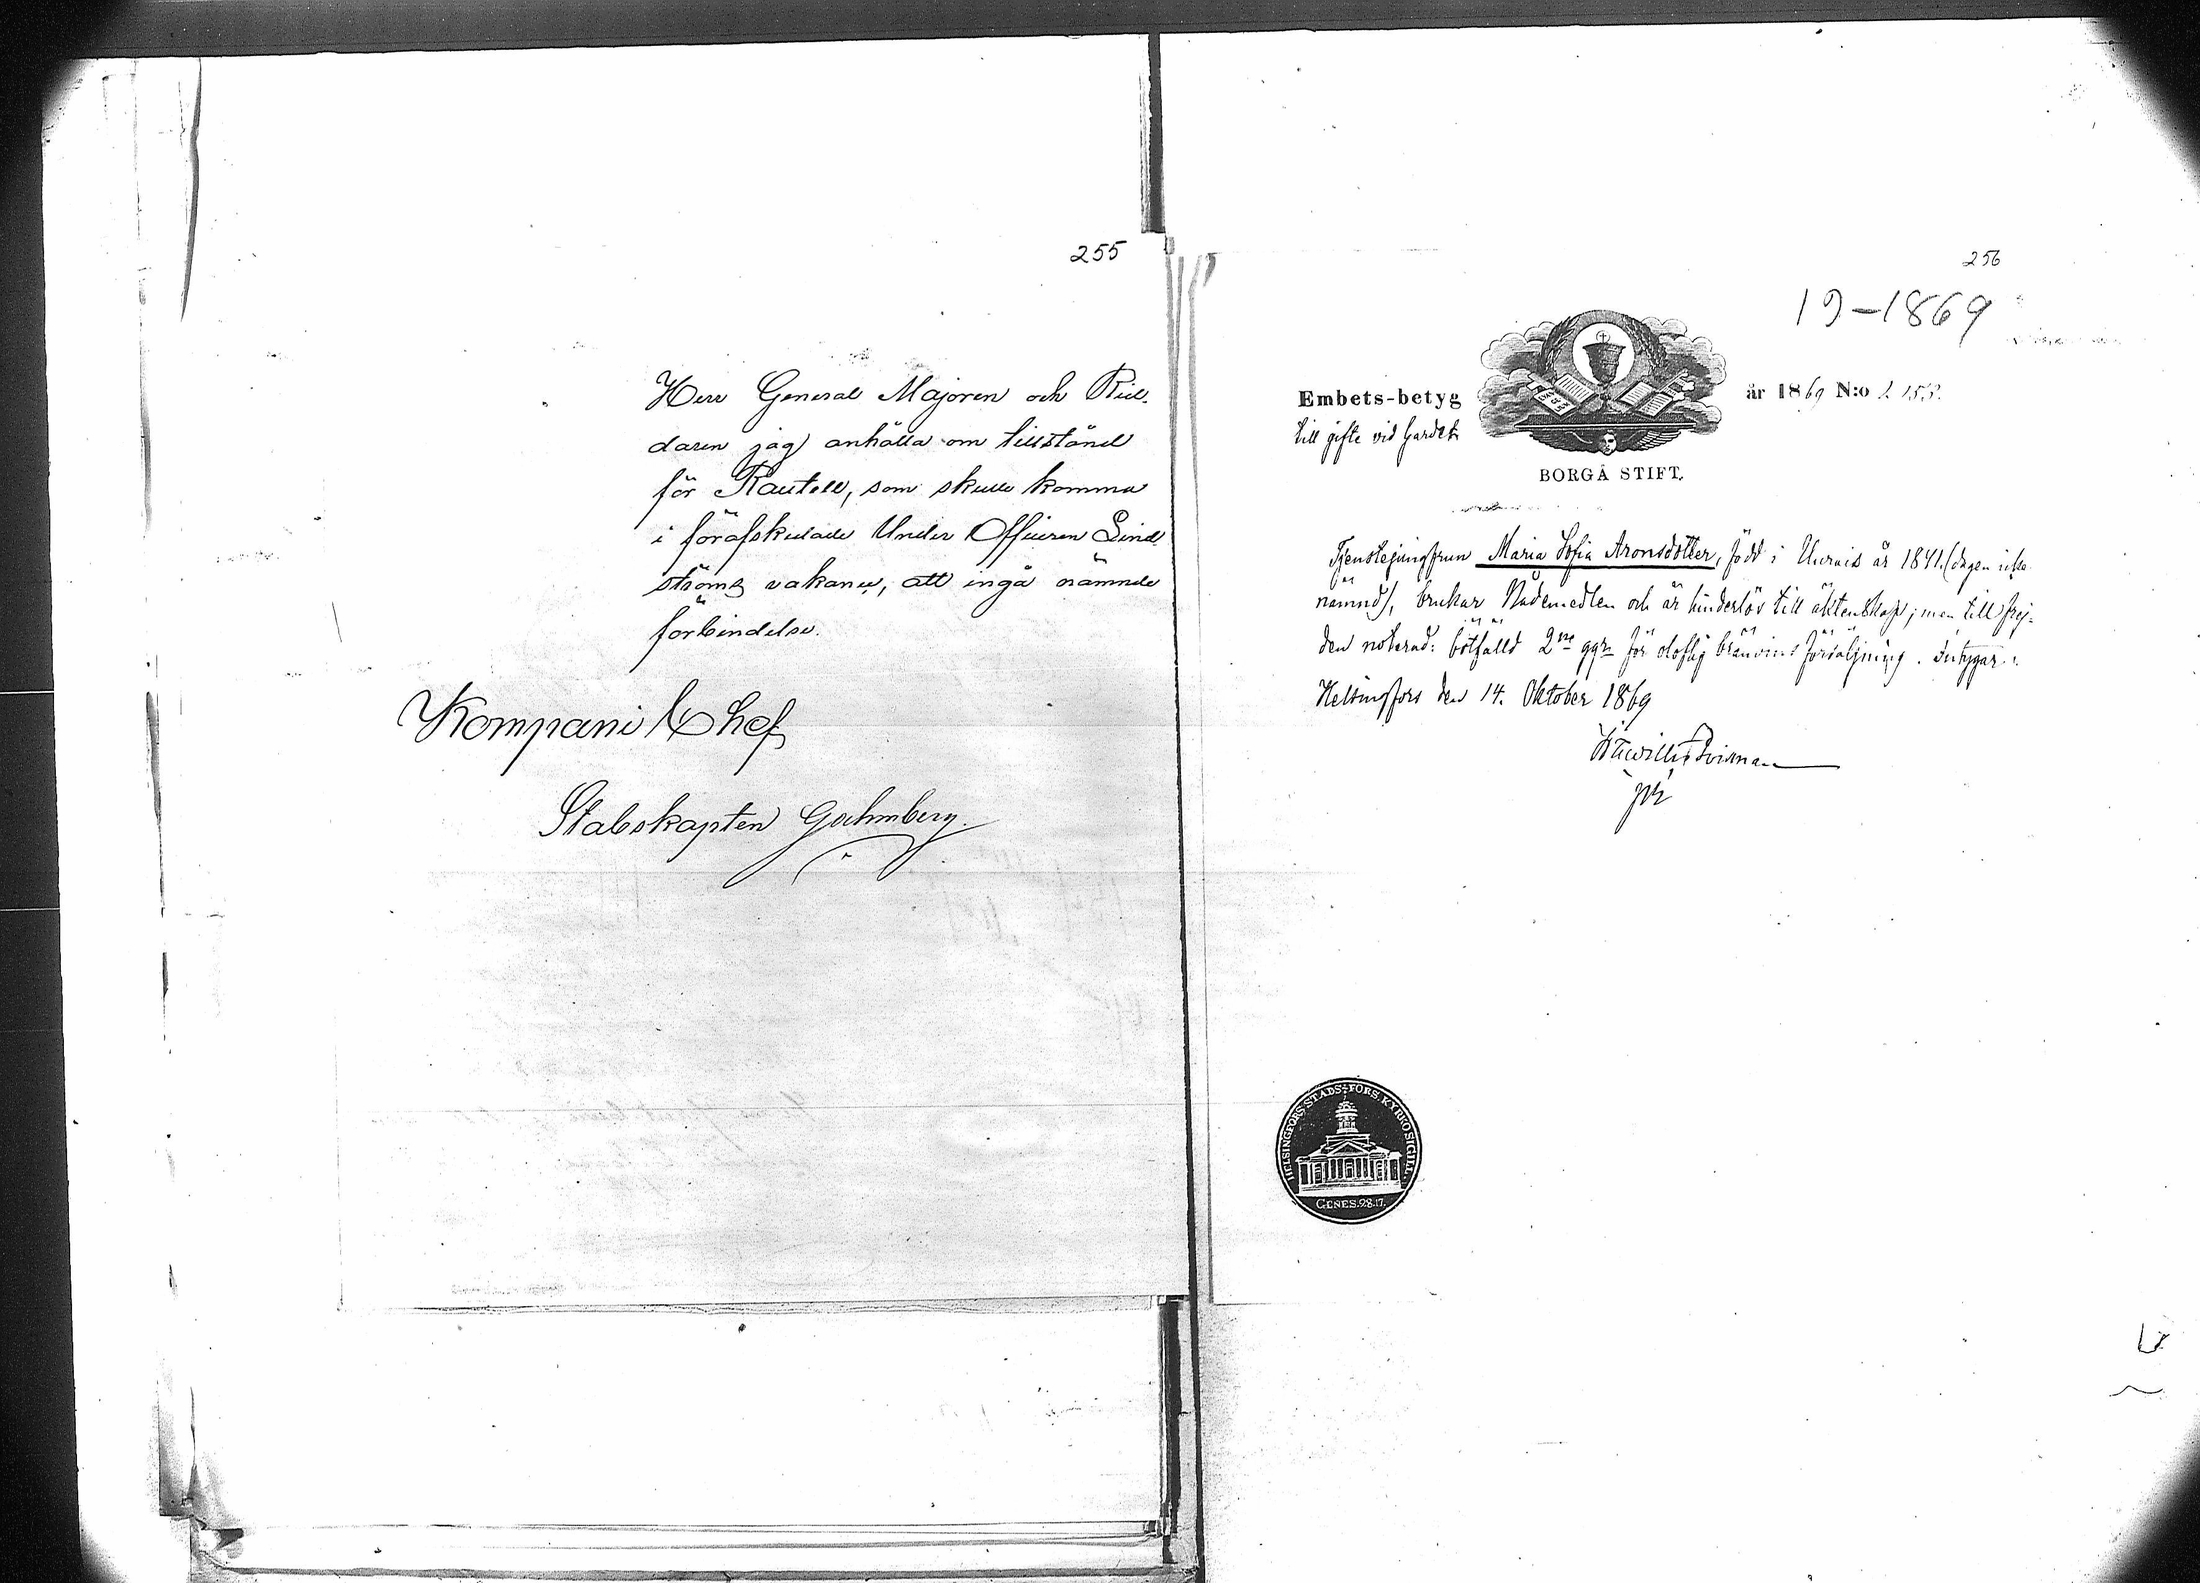 255
Herr General Majoren och Rid-
daren jag anhålla om tillstånd
för Rautell, som skulle komma
i förafskedade Under Officeren Lind
ströms vakance, att ingå nämnde
förbindelse.
Kompani Chef
Stabskapten
256
19-1869
Embets-betyg
till gifte vid Gardet
år 1869 N:o
BORGÅ STIFT.
Tjenstejungfrun Maria Sofia Aronsdotter, född i år 1841. (dagen icke
nämnd), brukar Nådemedlen och är hinderlös till äktenskap; men till frej-
den noterad: bötfälld 2ne ggr för oloflig bränvins försäljning. Intygar
Helsingfors den 14. Oktober 1869
HELSINGFORS STADS-FÖRS. KYRKO SIGILL.
GENES. 28.17.